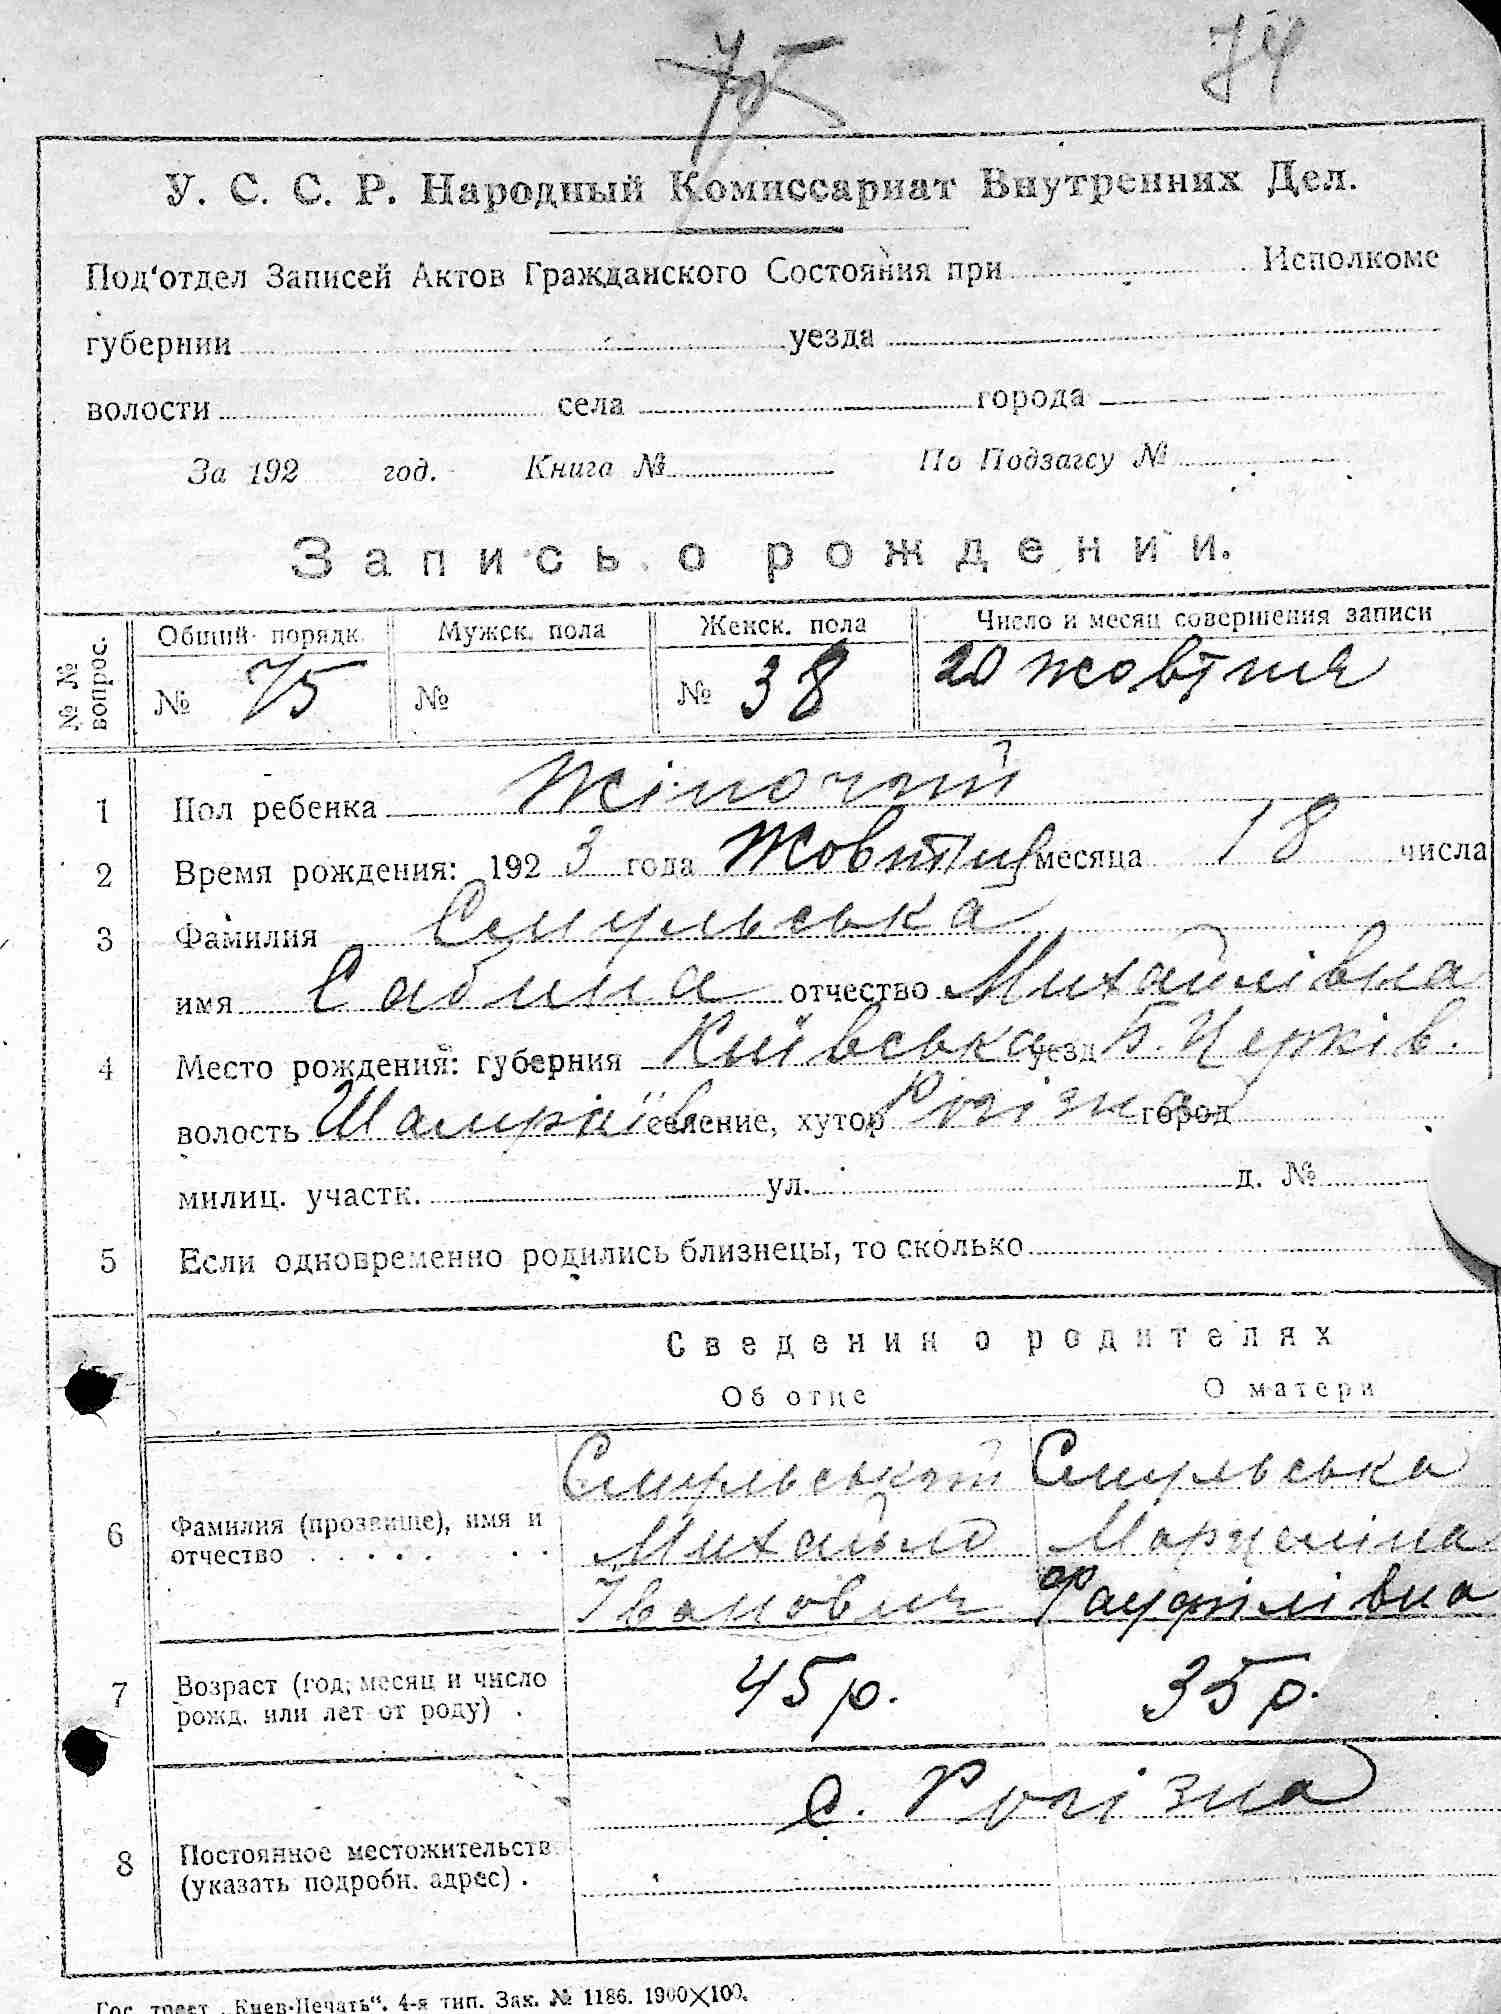 75 74
У. С. С. Р. Народный Комиссариат Внутренних Дел.
Под'отдел Записей Актов Гражданского Состояния при Исполкоме
губернии уезда
волости села города
За 192 год. Книга № По Подзагсу №
Запись о рождении.
№ № вопрос. Общий порядк. Мужск. пола Женск. пола Число и месяц совершения записи
№ 75 № № 38 20 жовтня
1 Пол ребенка Жіночий
2 Время рождения: 1923 года Жовтня месяца 18 числа
3 Фамилия Смульська
имя Сабина отчество Михайлівна
4 Место рождения: губерния Київська уезд Б. Церків.
волость Шамраїв селение, хутор Рогізна город
милиц. участк. ул. д. №
5 Если одновременно родились близнецы, то сколько
Сведения о родителях
Об отце О матери
Смульський Смульська
6 Фамилия (прозвище), имя и Михайло Марцеліна
отчество Іванович
7 Возраст (год, месяц и число 45 р. 35 р.
рожд. или лет от роду) .
с. Рогізна
8 Постоянное местожительств
(указать подробн. адрес) .
Гос. трест „Киев-Печать“. 4-я тип. Зак. № 1186. 1900×100.